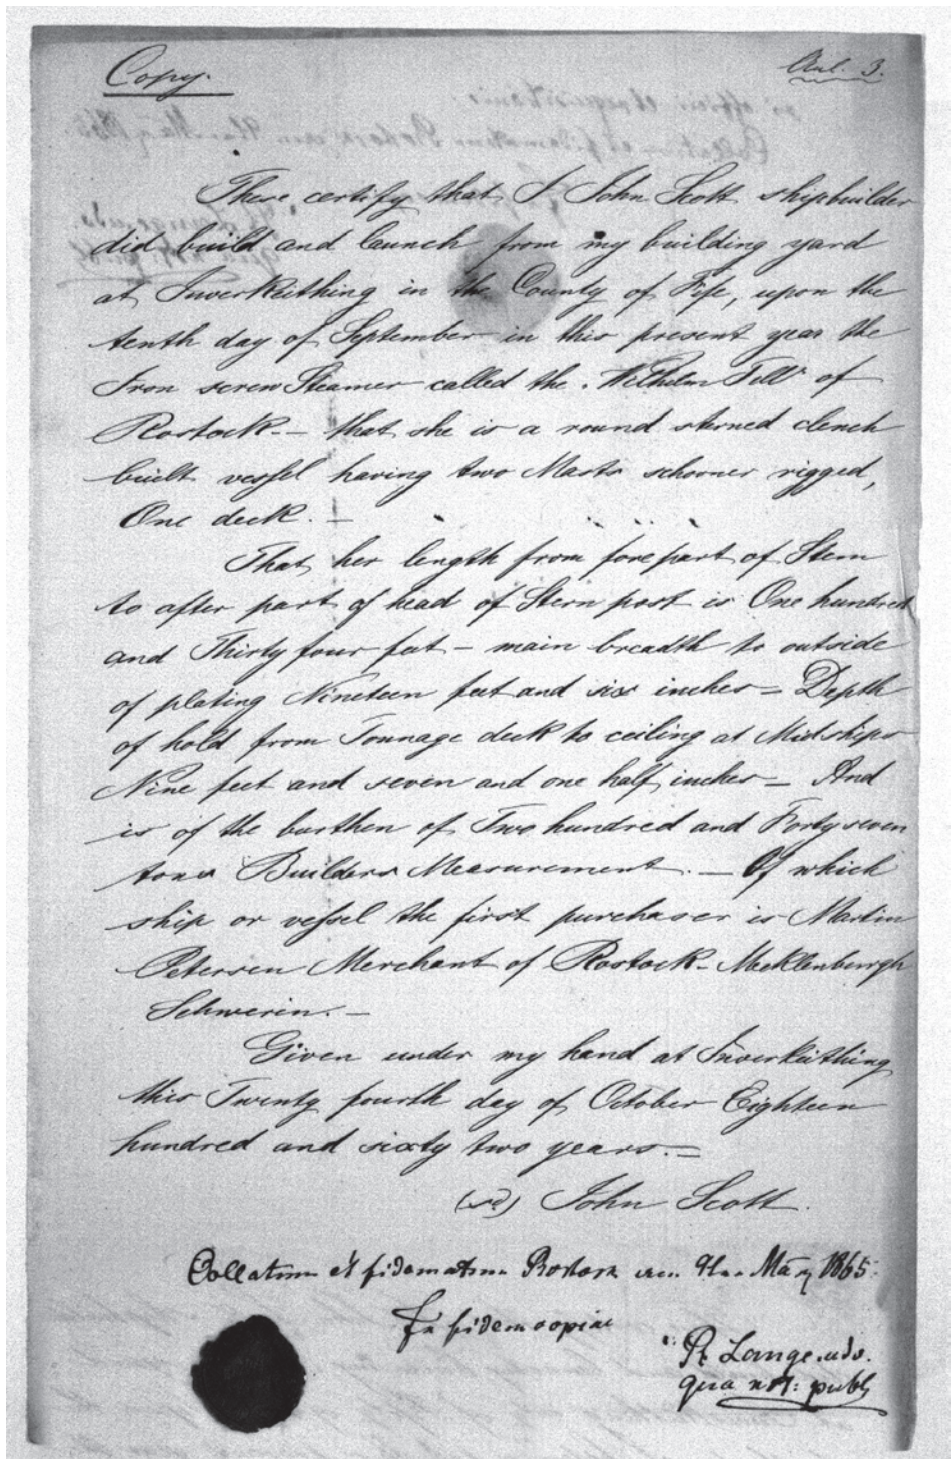 Copy.
Anl. 3.
These certify that I John Scott shipbuilder
did build and launch from my building yard
at Inverkeithing in the County of Fife, upon the
tenth day of September in this present year the
Iron screw Steamer called the "Wilhelm Tell" of
Rostock. – that she is a round sterned clench
built vessel having two Masts schooner rigged,
One deck. –
That her length from forepart of Stem
to after part of head of Stern post is One hundred
and Thirty four feet – main breadth to outside
of plating Nineteen feet and six inches – Depth
of hold from Tonnage deck to ceiling at Midships
Nine feet and seven and one half inches – And
is of the burthen of Two hundred and Forty seven
tons Builders Measurement. – Of which
ship or vessel the first purchaser is Martin
Petersen Merchant of Rostock – Mecklenburgh
Schwerin. –
Given under my hand at Inverkeithing
this Twenty fourth day of October Eighteen
hundred and sixty two years. –
(sd) John Scott.
Collatum et fidematum Rostock März 1865.
In fidem copiae
Lange
qua not: publ